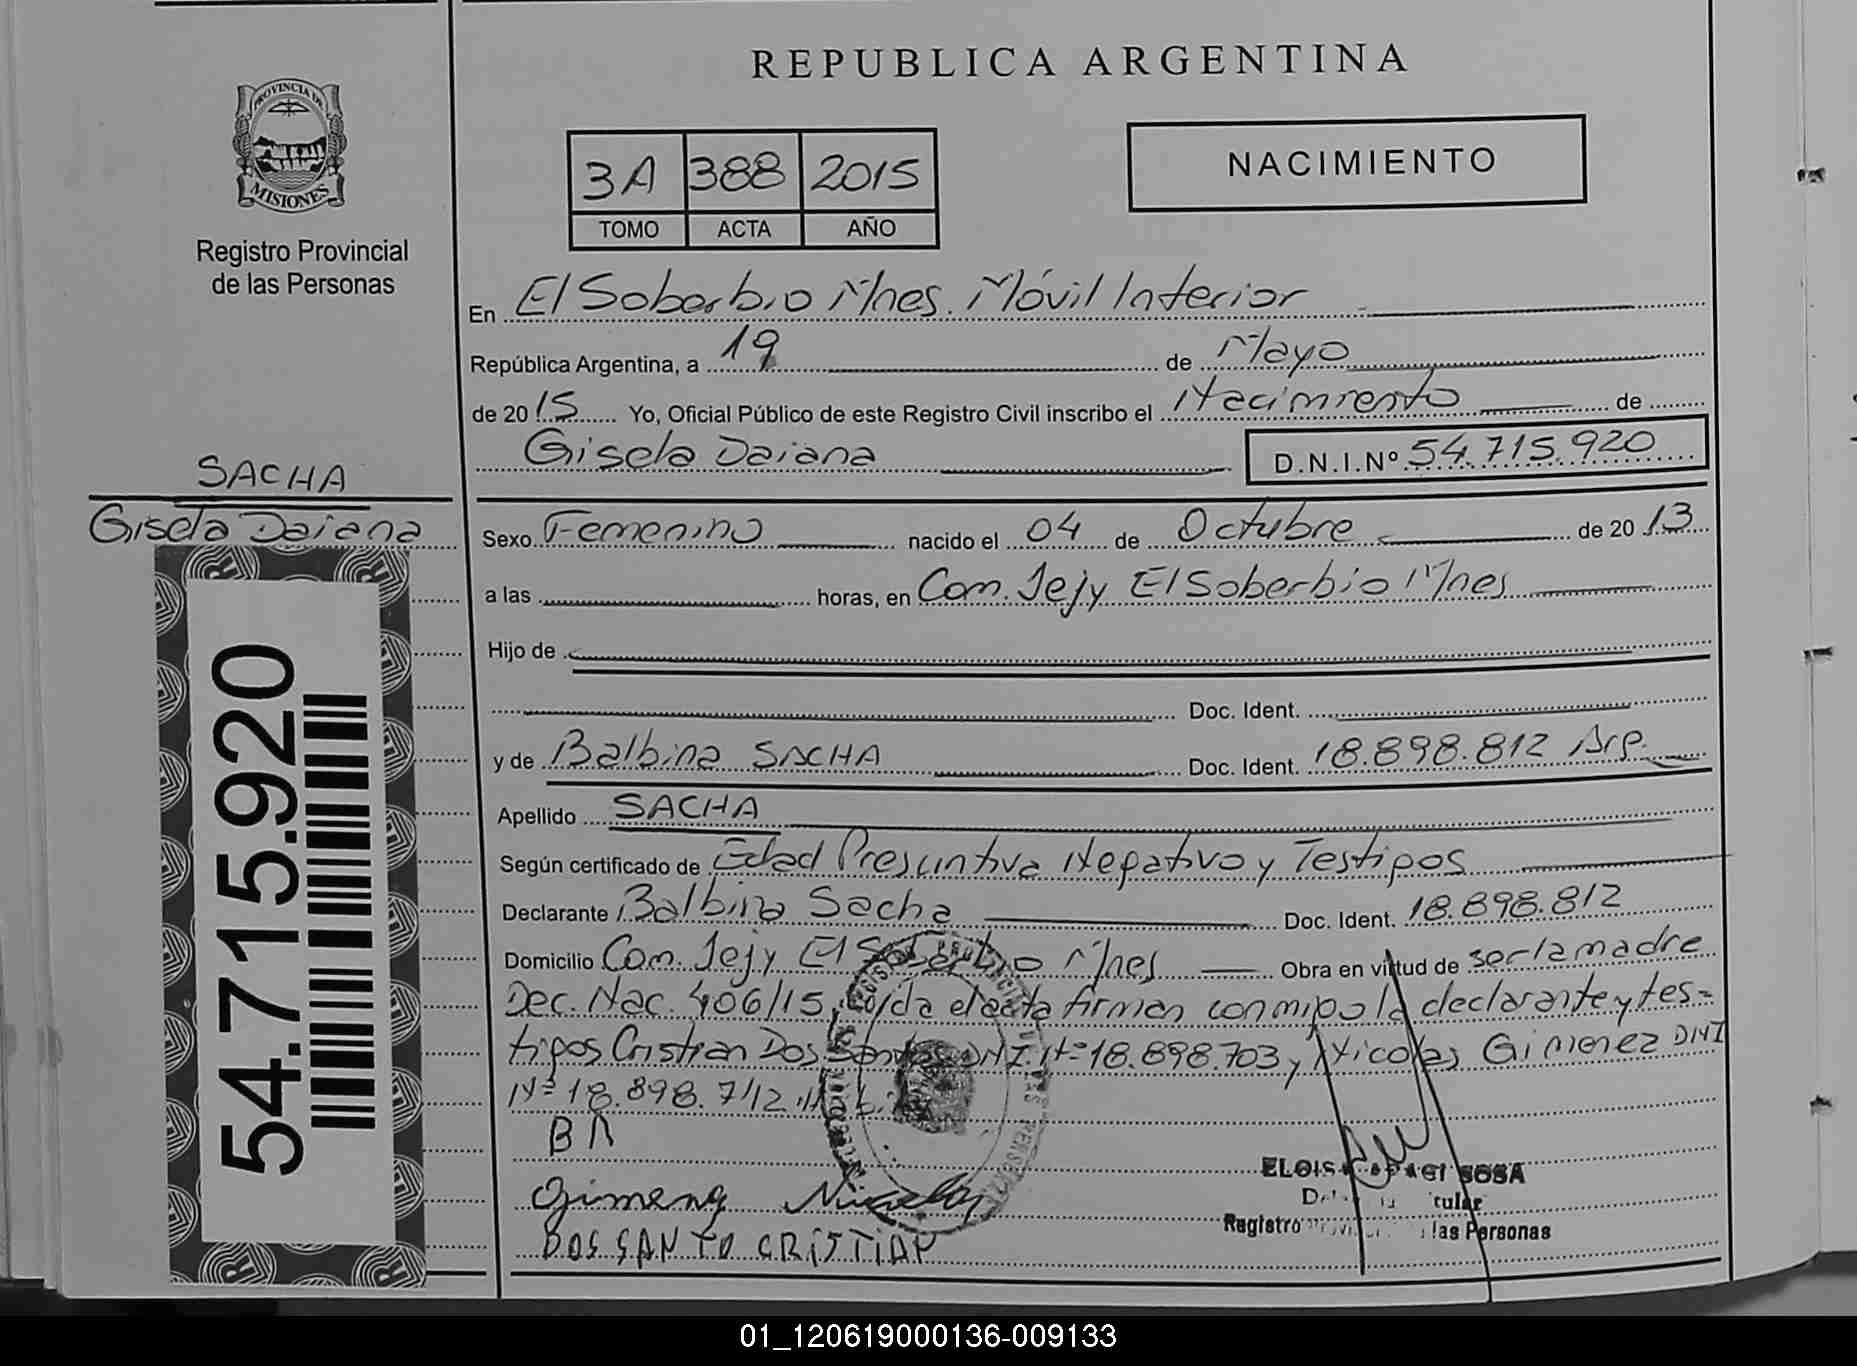 REPUBLICA ARGENTINA
PROVINCIA DE
MISIONES
Registro Provincial
de las Personas
3A 388 2015
TOMO ACTA AÑO
NACIMIENTO
En El Soberbio Mnes. Móvil Interior
República Argentina, a 19 de Mayo
de 2015 Yo, Oficial Público de este Registro Civil inscribo el Nacimiento de
Gisela Daiana D.N.I.Nº 54.715.920
SACHA
Gisela Daiana
54.715.920
Sexo Femenino nacido el 04 de Octubre de 2013
a las horas, en Com. Jejy El Soberbio Mnes
Hijo de
Doc. Ident.
y de Balbina SACHA Doc. Ident. 18.898.812 Arg.
Apellido SACHA
Según certificado de Edad Presuntiva Negativo y Testigos
Declarante Balbina Sacha Doc. Ident. 18.898.812
Domicilio Com. Jejy El Soberbio Mnes Obra en virtud de ser la madre
Dec. Nac. 406/15, Leída el acta firman conmigo la declarante y tes=
tigos Cristian Dos Santos DNI. Nº 18.898.703 y Nicolas Gimenez DNI
Nº 18.898.712
BA
Gimenez Nicolas
DOS SANTO CRISTIAN
SOSA
Registro las Personas
01_120619000136-009133